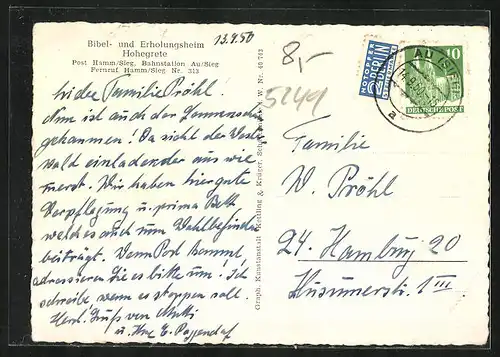 Bibel- und Erholungsheim
Hohegrete
Post Hamm/Sieg, Bahnstation Au/Sieg
Fernruf Hamm/Sieg Nr. 313
13.9.50
8,-
5249
NOTOPFER
2 BERLIN
STEUERMARKE
AU (SIEG)
a
10
DEUTSCHE POST
Graph. Kunstanstalt Kettling & Krüger, Schalksmühle i. W. Nr. 40 743
Liebe Familie Pröhl.
Nun ist auch der Sonnenschein
gekommen! Da sieht der Wester
wald einladender aus wie
zuerst. Wir haben hier gute
Verpflegung u. prima Betten
welches auch zum Wohlbefinden
beiträgt. Wenn Post kommt,
adressieren Sie es bitte um. Ich
schreibe, wenn es stoppen soll.
Herzl. Gruß von Mutti
u. Ihre E.
Familie
W. Pröhl
24. Hamburg 20
Husumerstr. 1 III